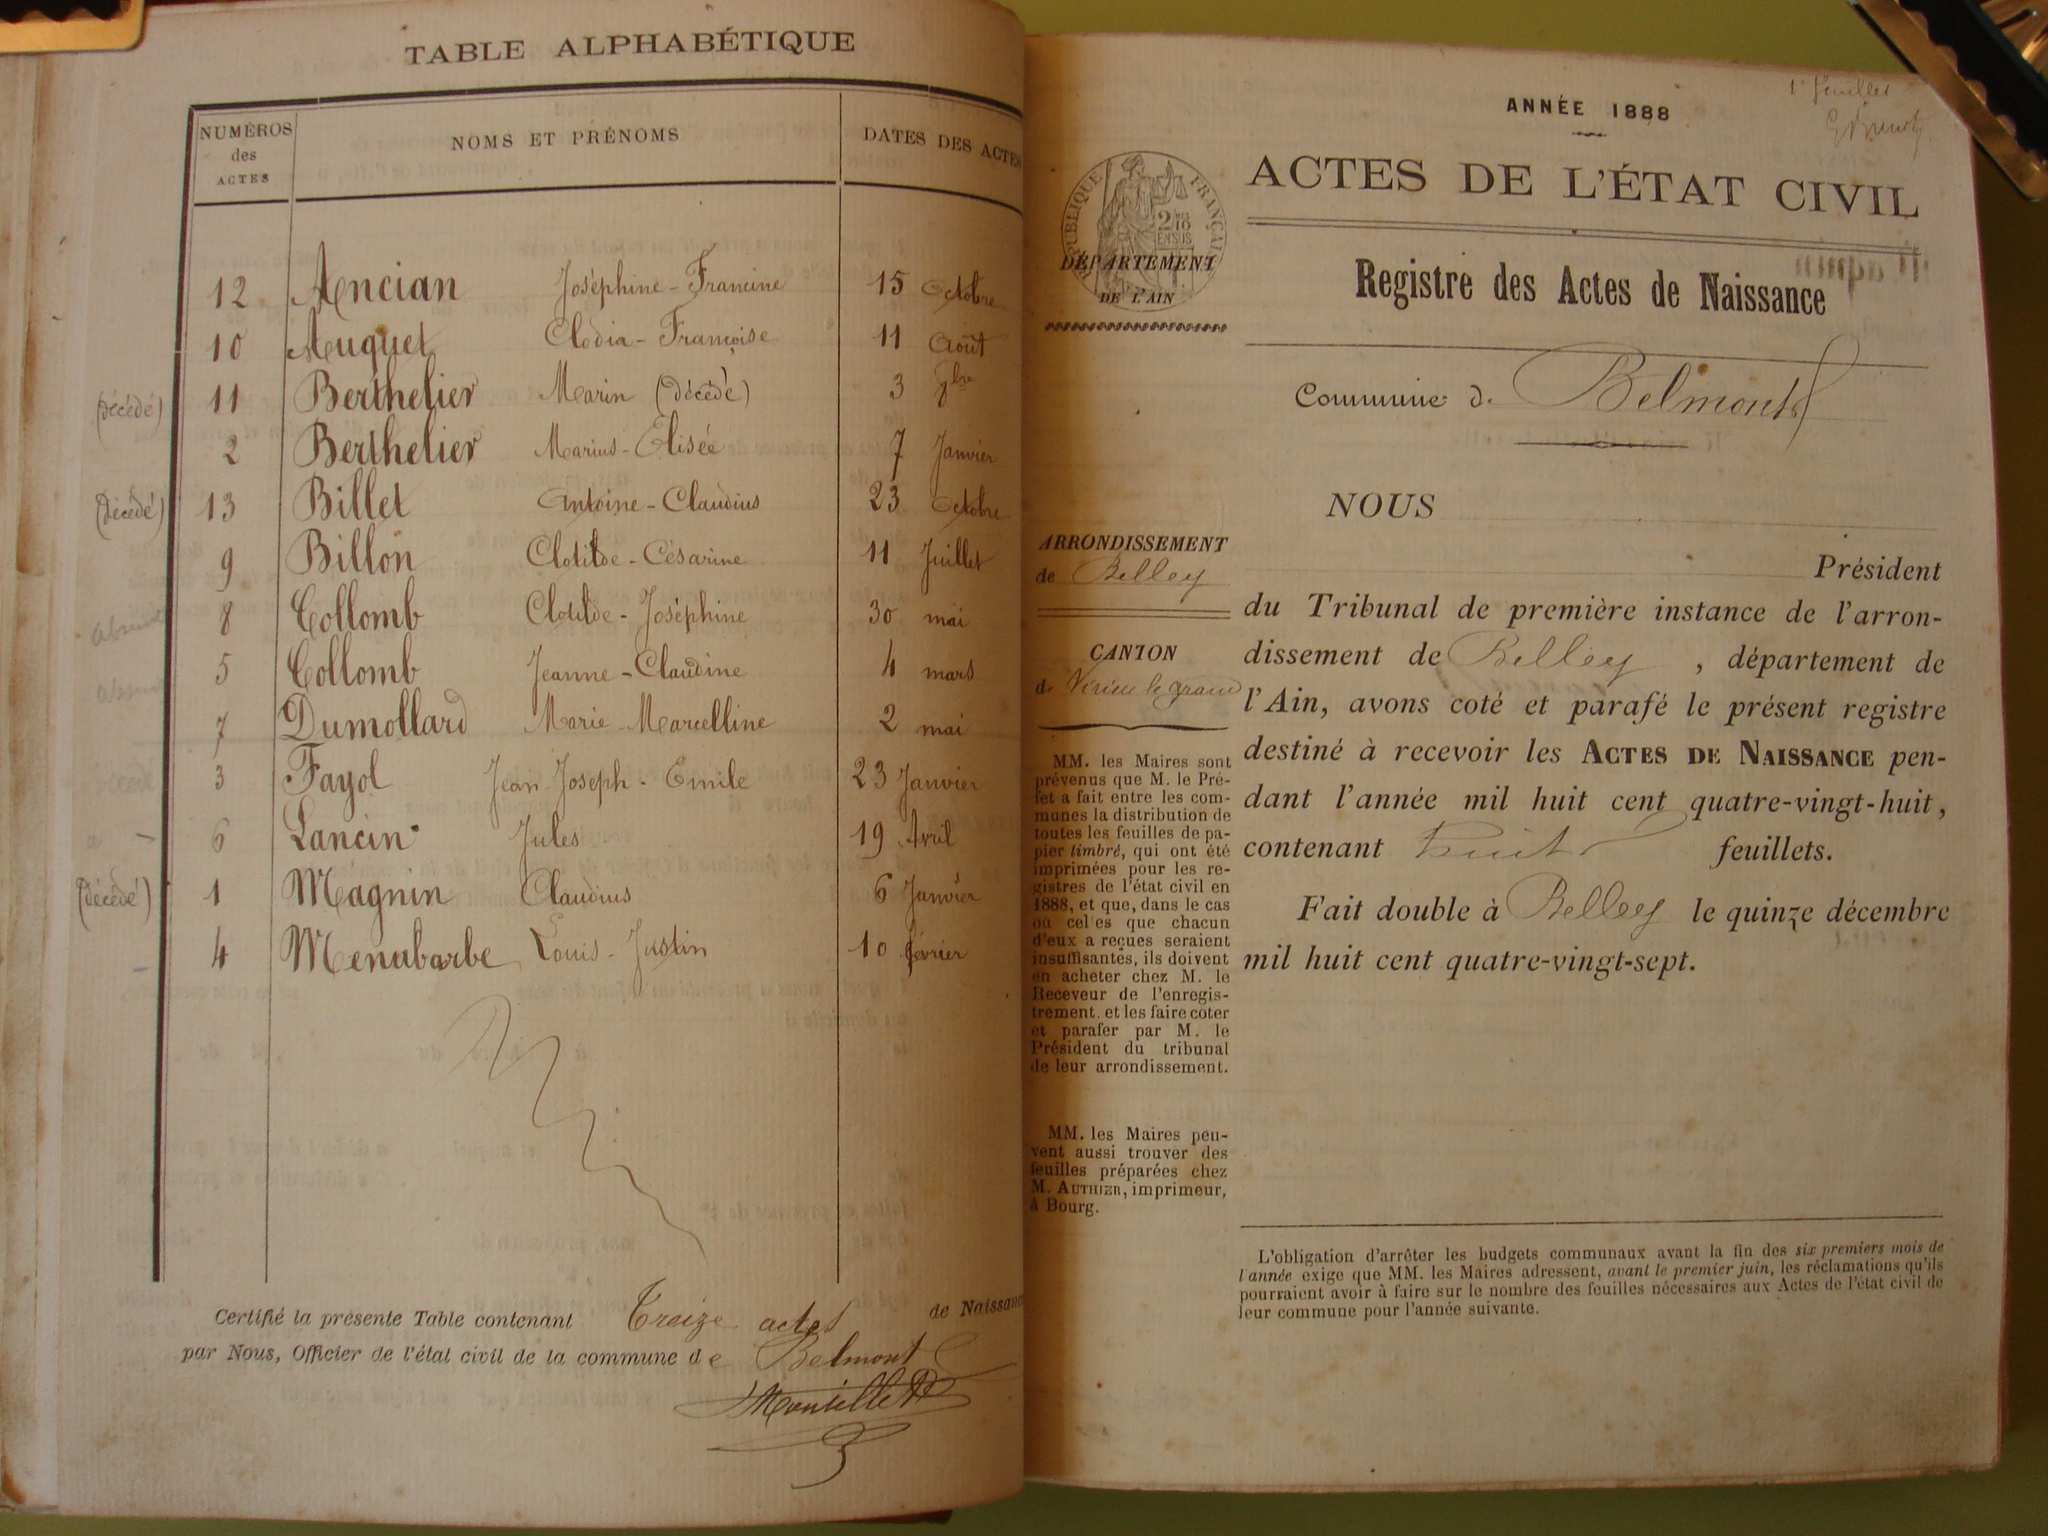 TABLE ALPHABÉTIQUE
NUMÉROS des ACTES NOMS ET PRÉNOMS DATES DES ACTES
12 Ancian Joséphine-Francine 15 Octobre
10 Auguet Clodia-Françoise 11 Août
(décédé) 11 Berthelier Marin (décédé) 3 7bre
2 Berthelier Marius-Elisée 7 Janvier
(décédé) 13 Billet Antoine-Claudius 23 Octobre
9 Billon Clotilde-Césarine 11 Juillet
8 Collomb Clotilde-Joséphine 30 mai
5 Collomb Jeanne-Claudine 4 mars
7 Dumollard Marie Marcelline 2 mai
3 Fayol Jean Joseph-Emile 23 Janvier
6 Lancin Jules 19 Avril
(décédé) 1 Magnin Claudius 6 Janvier
4 Menabarbe Louis-Justin 10 février
Certifié la présente Table contenant Treize actes de Naissance
par Nous, Officier de l'état civil de la commune de Belmont
1er feuillet
ANNÉE 1888
ACTES DE L'ÉTAT CIVIL
RÉPUBLIQUE FRANÇAISE
DÉPARTEMENT
DE L'AIN
Registre des Actes de Naissance
Commune de Belmont
NOUS
Président
du Tribunal de première instance de l'arron-
dissement de Belley, département de
l'Ain, avons coté et parafé le présent registre
destiné à recevoir les ACTES DE NAISSANCE pen-
dant l'année mil huit cent quatre-vingt-huit,
contenant huit feuillets.
Fait double à Belley le quinze décembre
mil huit cent quatre-vingt-sept.
ARRONDISSEMENT
de Belley
CANTON
de Virieu le grand
MM. les Maires sont
prévenus que M. le Pré-
fet a fait entre les com-
munes la distribution de
toutes les feuilles de pa-
pier timbré, qui ont été
imprimées pour les re-
gistres de l'état civil en
1888, et que, dans le cas
où celles que chacun
d'eux a reçues seraient
insuffisantes, ils doivent
en acheter chez M. le
Receveur de l'enregis-
trement, et les faire coter
et parafer par M. le
Président du tribunal
de leur arrondissement.
MM. les Maires peu-
vent aussi trouver des
feuilles préparées chez
M. AUTHIER, imprimeur,
à Bourg.
L'obligation d'arrêter les budgets communaux avant la fin des six premiers mois de
l'année exige que MM. les Maires adressent, avant le premier juin, les réclamations qu'ils
pourraient avoir à faire sur le nombre des feuilles nécessaires aux Actes de l'état civil de
leur commune pour l'année suivante.